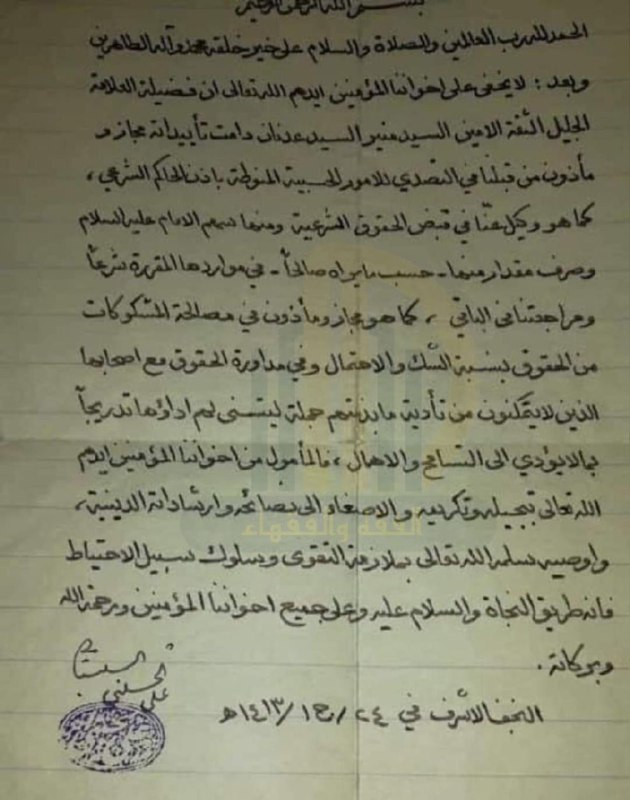 بسم الله الرحمن الرحيم
الحمد لله رب العالمين والصلاة والسلام على خير خلقه محمد وآله الطاهرين
وبعد : لا يخفى على اخواننا المؤمنين ايدهم الله تعالى ان فضيلة العلامة
الجليل الثقة الامين السيد منير السيد عدنان دامت تأييداته مجاز و
مأذون من قبلنا في التصدي للامور الحسبية المنوطة باذن الحاكم الشرعي ،
كما هو وكيل عنّا في قبض الحقوق الشرعية ومنها سهم الامام عليه السلام
وصرف مقدار منها - حسب ما يراه صالحاً - في مواردها المقررة شرعاً
ومراجعتنا في الباقي ، كما هو مجاز ومأذون في مصالحة المشكوكات
من الحقوق بنسبة الشك والاحتمال وفي مداورة الحقوق مع اصحابها
الذين لا يتمكنون من تأدية ما بذمتهم جملة ليتسنى لهم اداؤها تدريجاً
بما لا يؤدي الى التسامح والاهمال ، فالمأمول من اخواننا المؤمنين ايدهم
الله تعالى تبجيله وتكريمه والاصغاء الى نصائحه وارشاداته الدينية ،
الفقه والفقهاء
واوصيه سلمه الله تعالى بملازمة التقوى وبسلوك سبيل الاحتياط
فانه طريق النجاة والسلام عليه وعلى جميع اخواننا المؤمنين ورحمة الله
وبركاته .
علي الحسيني السيستاني
النجف الاشرف في ٢٤ / ج١ / ١٤١٣ هـ